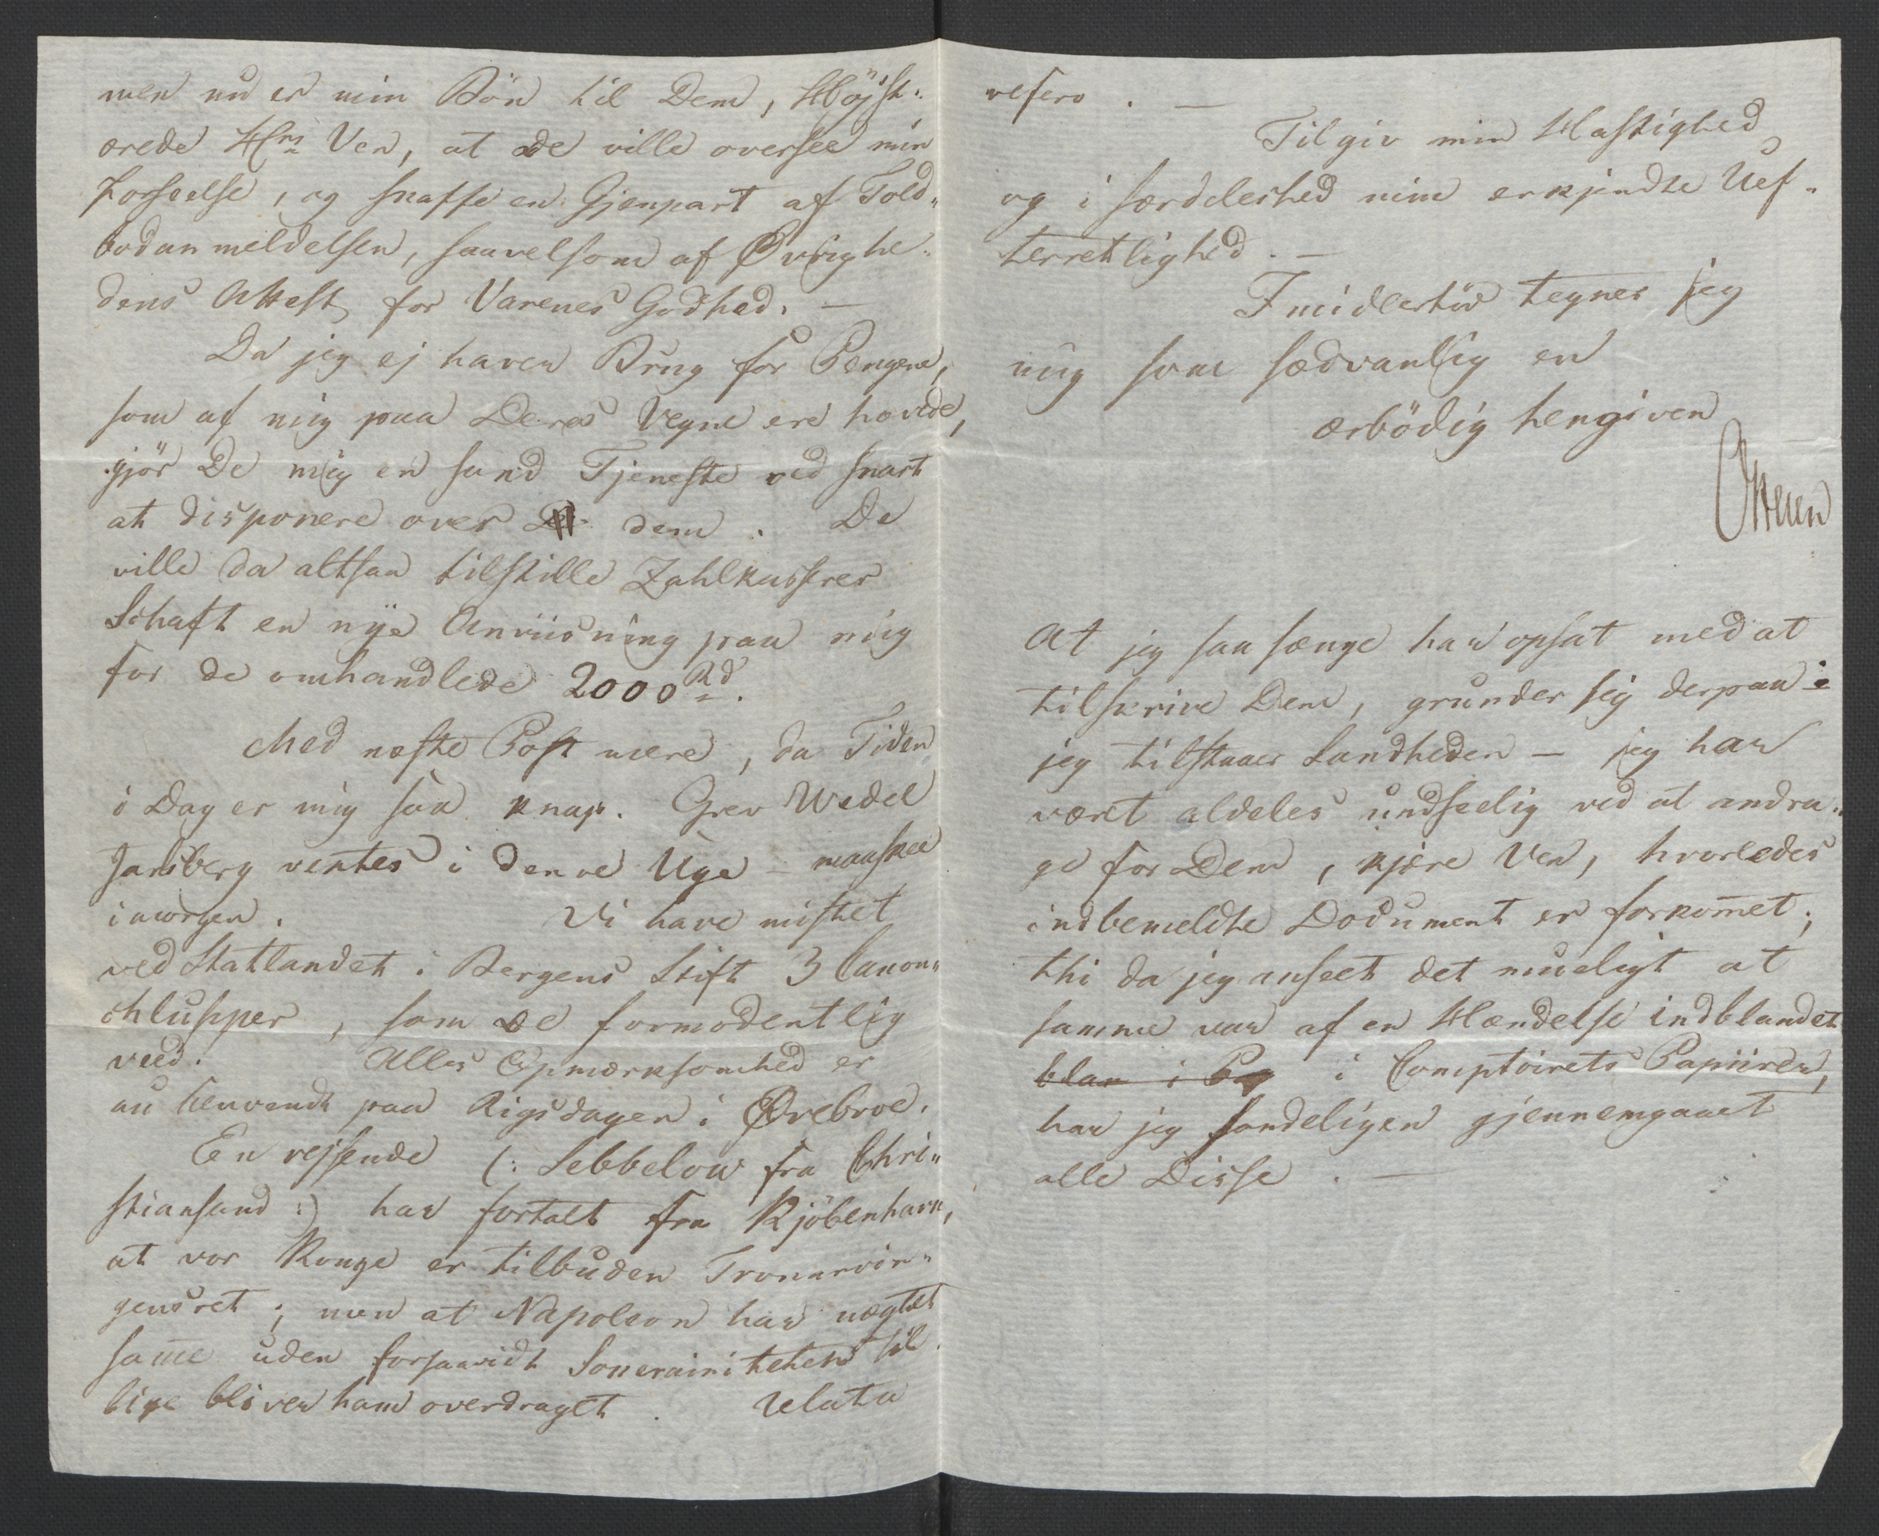 men nu er min Bön til Dem, Höjst-
ærede Hrr Ven, at De ville oversee min
Forseelse, og skaffe en Gjenpart af Told„
bodanmeldelsen, saavelsom af Øvrighe„
dens Attest for Varenes Godhed. —
Da jeg ej haver Brug for Pengene,
som af mig paa Deres Vegne ere hævede,
gjör De mig en sand Tjeneste ved snart
at disponere over dem. De
ville da altsaa tilstille Zahlkasserer
Schaft en nye Anviisning paa mig
for de omhandlede 2000 Rd.
Med næste Post mere, da Tiden
i Dag er mig saa knap. Grev Wedel
Jarlsberg ventes i denne Uge – maaskee
imorgen. Vi have mistet
ved Statlandet i Bergens Stift 3 Canon„
chlupper, som De formodentlig
veed. Alles Opmærksomhed er
nu henvendt paa Rigsdagen i Ørebroe.
En rejsende (: Sebbelow fra Chri„
stiansand :) har fortalt fra Kjöbenhavn,
at vor Konge er tilbuden Tronarvin„
gensret; men at Napoleon har nægtet
same uden forsaavidt Souverainiteten til
lige bliver ham overdraget. Relata
refero. —
Tilgiv min Hastighed
og i særdeleshed min erkjendte Uef„
terretlighed. —
Imidlertid tegner jeg
mig som sædvanlig en
ærbödig hengiven
Otteren
At jeg saa længe har opsat med at
tilskrive Dem, grunder sig derpaa –
jeg tilstaaer Sandheden – jeg har
været aldeles undseelig ved at andra„
ge for Dem, kjære Ven, hvorledes
indbemeldte Document er forkomet;
thi da jeg anseet det mueligt at
samme var af en Hændelse indblandet
blan i Pap i Comptoirets Papiirer,
har jeg sandeligen gjennemgaaet
alle Disse. —